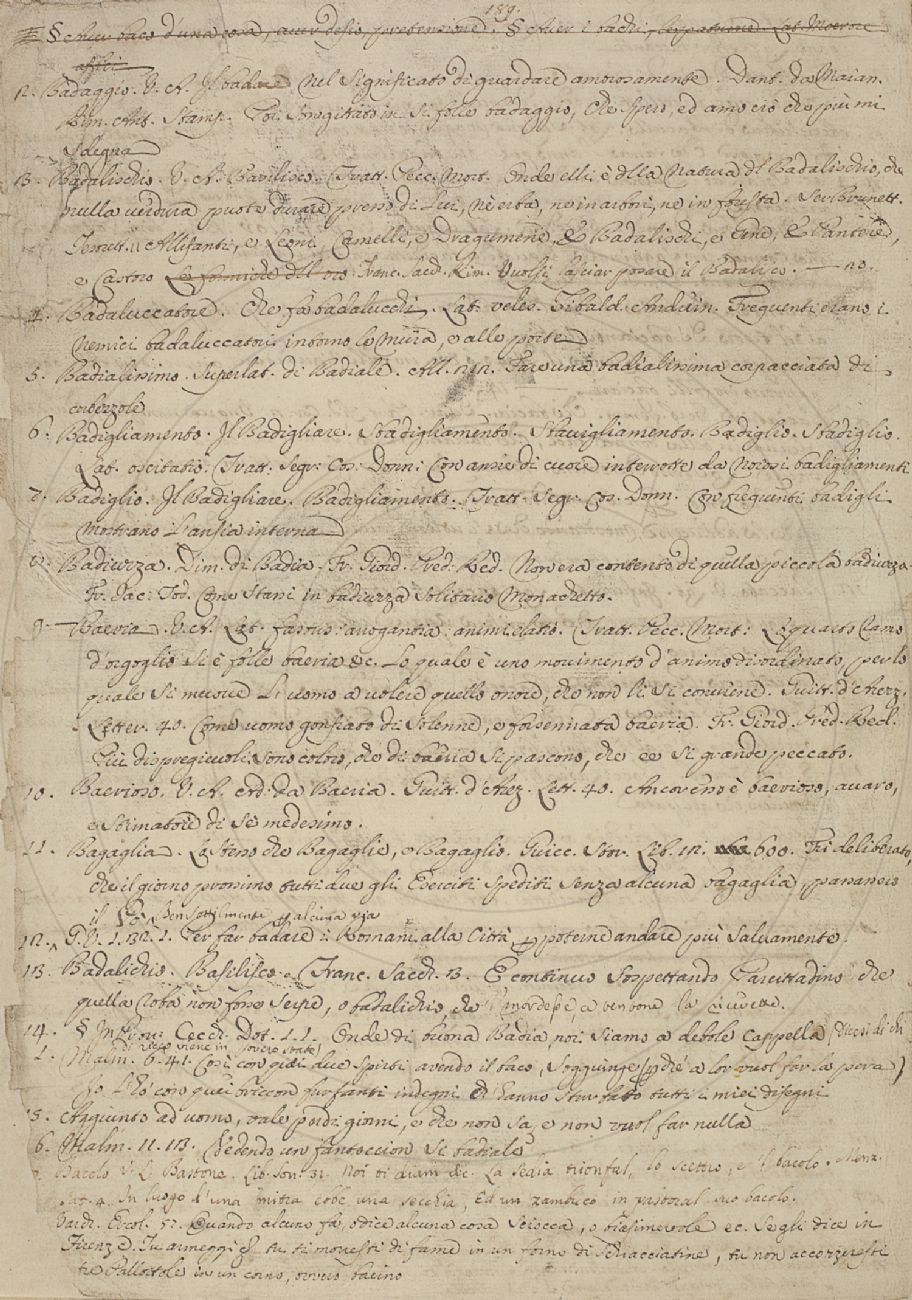 189.
§ Aver baco d'una cosa, aver desio, pretensione. § Aver i bachi, Lat. Moerore
affici
2. Badaggio. V. A. Il badare nel significato di guardare amorosamente. Dant. da Maian.
Rim. Ant. Stamp. in si folle badaggio, Che spero, ed amo ciò che più mi
sdegna
3. Badalischio. V. A. Basilisco. Tratt. Pecc. Mort. Onde elli è della natura del Badalischio, che
nulla verdura puote durare presso di lui, nè erba, nè in arbori, nè in foresta. Ser Brunett.
Tesorett. Allifanti, e Leoni, Camelli, e Dragumene, E Badalischi, e Gene, E Pantere,
e Castoro Le formiche dell' oro Franc. Sacch. Rim. Vuolsi lasciar posare il Badalico.
4. Badaluccatore. Che fa badalucchi. Lat. veles. Tibald. Anduin. Frequenti erano i
nemici badaluccatori intorno le mura, e alle porte
5. Badialissimo. Superlat. di Badiale. All. Fare una badialissima corpacciata di
corbezzole
6. Badigliamento. Il Badigliare. Sbadigliamento. Sbavigliamento. Badiglio. Sbadiglio.
Lat. oscitatio. Tratt. Segr. Cos. Donn. Con ansie di cuore interrotte da noiosi badigliamenti
7. Badiglio. Il Badigliare. Badigliamento. Tratt. Segr. Cos. Donn. Con frequenti badigli
mostrano l'ansia interna
8. Badiuzza. Dim. di Badia. Fr. Giord. Pred. Red. Non era contento di quella piccola badiuzza.
Fr. Iac. Tod. Come stassi in badiuzza solitario Monachetto.
9. Baeria. V. A. Lat. fastus: arrogantia: animi elatio. Tratt. Pecc. Mort: Lo quarto ramo
d'orgoglio si è folle baeria &c. Lo quale è uno movimento d'animo disordinato, per lo
quale si muove li uomo a volere quello onore, che non li si conviene. Guitt. d'Arezz.
Letter. 40. Come uomo gonfiato di solenne, e forsennata baeria. Fr. Giord. Pred. Red.
Più dispregievoli sono coloro, che di baeria si pascono, che è si grande peccato.
10. Baerioso. V. A. Add. da Baeria. Guitt. d'Arez. Lett. 40. Ancor esso è baerioso, avaro,
e stimatore di se medesimo.
11. Bagaglia. Lo stesso che Bagaglie, e Bagaglio. Guicc. Stor. Lib. 12. 600. Fu deliberato,
che il giorno prossimo tutti due gli Eserciti spediti senza alcuna bagaglia, passassero
il Pò. ben sottilmente per alcuna via
12. G. V. 1. 32. 1. Per far badare i Romani alla Città per poterne andare più salvamente.
13. Badalichio. Basilisco. Franc. Sacch. 13. E continuo sospettando l'accittadino che
quella cioba non fosse serpe, o badalichio, che 'l mordesse,
14. § In Prov. Cecch. Dot. 1. 1. Onde di buona Badia, noi siamo a debole Cappella
1. Malm. 6. 41. Così con quei due spirti avendo il baco, Soggiunge (perchè a lor vuol far la pera)
Io l'ho con quei briccon furfanti indegni Ch'hanno sturbato tutti i miei disegni
5. Aggiunto ad uomo, vale perdi giorni, e che non sa, e non vuol far nulla
6. Malm. 11. 13. Vedendo un fantoccion si badiale
Bacolo V. L. Bastone. Lib. Son. 31. Noi ti diam &c. La sedia trionfal, lo scettro, e 'l bacolo. Menz.
Sat. 4. In luogo d'una mitra ebbe una secchia, Ed un zambuco in pastoral suo bacolo.
Varch. Ercol. 57. Quando alcuno fa, o dice alcuna cosa sciocca, o biasimevole &c. Segli dice in
Firenze. Tu armeggi tu ti movesti di fame in un forno di schiacciatine, tu non accozzeresti
tre Pallottole in un corno, ovvero bacino